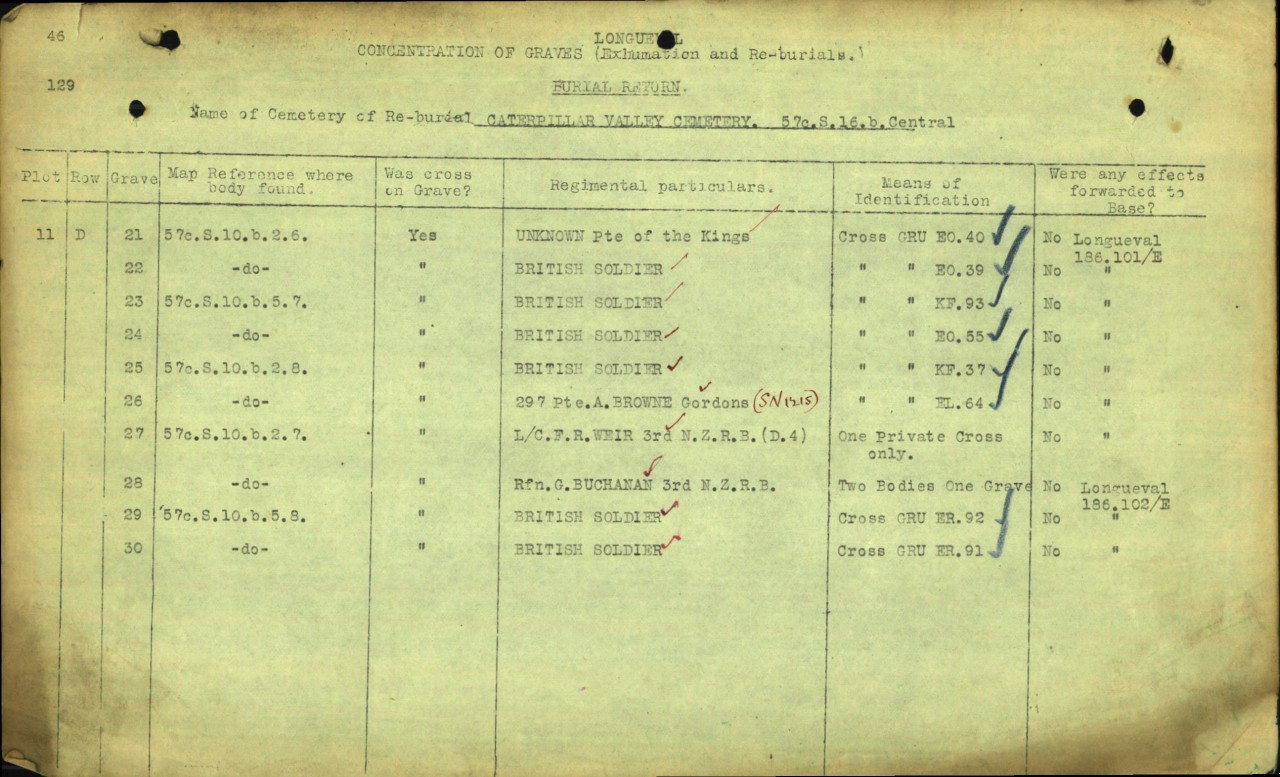 46
LONGUEVAL
CONCENTRATION OF GRAVES (Exhumation and Re-burials.)
129
BURIAL RETURN.
Name of Cemetery of Re-burial CATERPILLAR VALLEY CEMETERY. 57c.S.16.b.Central
Plot Row Grave Map Reference where body found. Was cross on Grave? Regimental particulars. Means of Identification Were any effects forwarded to Base?
11 D 21 57c.S.10.b.2.6. Yes UNKNOWN Pte of the Kings Cross GRU EO.40 No Longueval 186.101/E
22 -do- " BRITISH SOLDIER " " EO.39 No "
23 57c.S.10.b.5.7. " BRITISH SOLDIER " " KF.93 No "
24 -do- " BRITISH SOLDIER " " EO.55 No "
25 57c.S.10.b.2.8. " BRITISH SOLDIER " " KF.37 No "
26 -do- " 297 Pte.A.BROWNE Gordons (SN1215) " " EL.64 No "
27 57c.S.10.b.2.7. " L/C.F.R.WEIR 3rd N.Z.R.B.(D.4) One Private Cross only. No "
28 -do- " Rfn.G.BUCHANAN 3rd N.Z.R.B. Two Bodies One Grave No Longueval 186.102/E
29 57c.S.10.b.5.8. " BRITISH SOLDIER Cross GRU ER.92 No "
30 -do- " BRITISH SOLDIER Cross GRU ER.91 No "